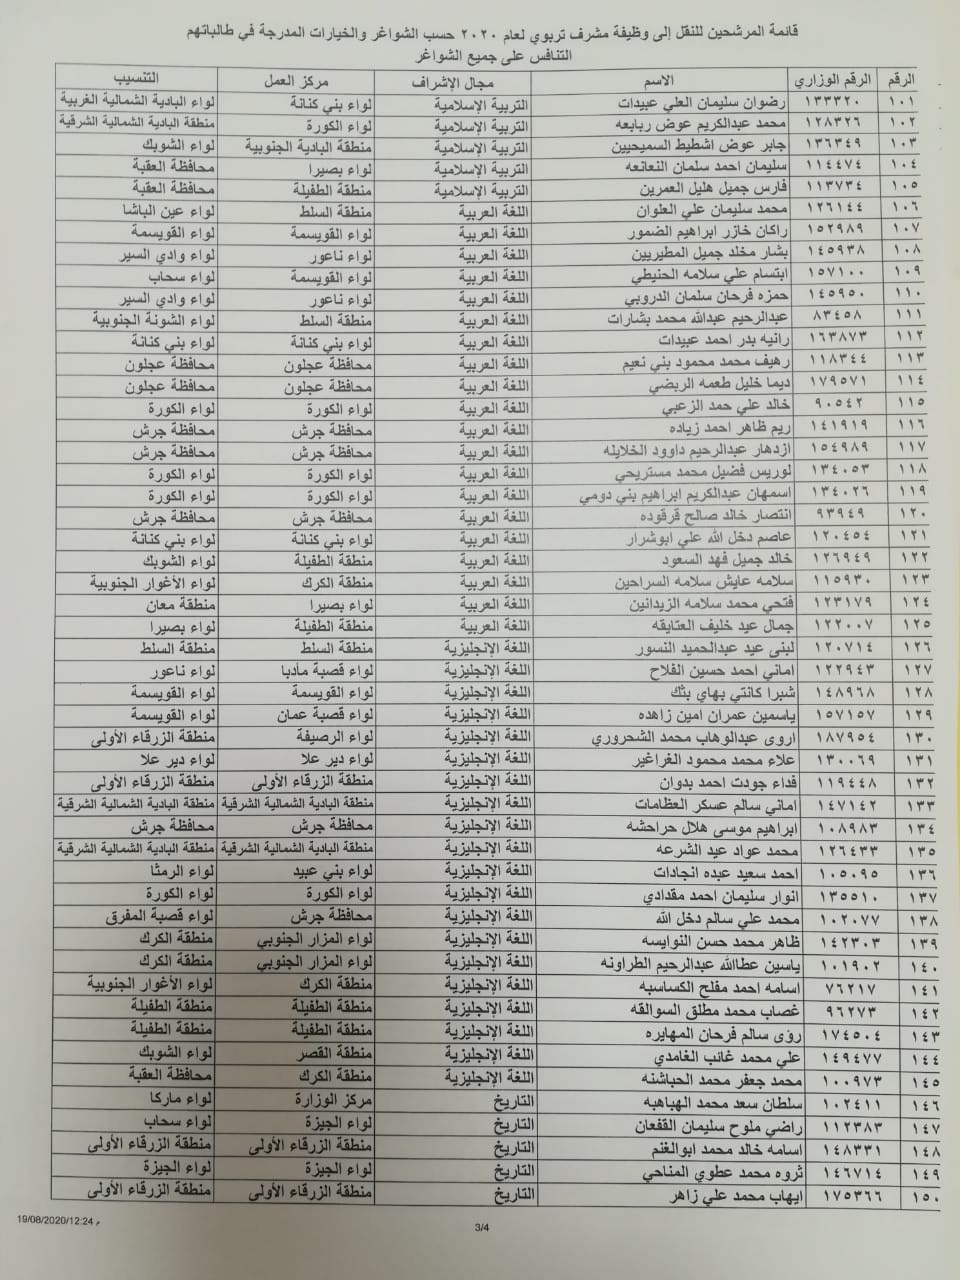 قائمة المرشحين للنقل إلى وظيفة مشرف تربوي لعام ٢٠٢٠ حسب الشواغر والخيارات المدرجة في طالباتهم
التنافس على جميع الشواغر
الرقم الرقم الوزاري الاسم مجال الإشراف مركز العمل التنسيب
١٠١ ١٣٣٣٢٠ رضوان سليمان العلي عبيدات التربية الإسلامية لواء بني كنانة لواء البادية الشمالية الغربية
١٠٢ ١٢٨٣٢٦ محمد عبدالكريم عوض ربابعه التربية الإسلامية لواء الكورة منطقة البادية الشمالية الشرقية
١٠٣ ١٣٦٣٤٩ جابر عوض اشطيط السميحيين التربية الإسلامية منطقة البادية الجنوبية لواء الشوبك
١٠٤ ١١٤٤٧٤ سليمان احمد سلمان النعانعه التربية الإسلامية لواء بصيرا محافظة العقبة
١٠٥ ١١٣٧٣٤ فارس جميل هليل العمرين التربية الإسلامية منطقة الطفيلة محافظة العقبة
١٠٦ ١٢٦١٤٤ محمد سليمان علي العلوان اللغة العربية منطقة السلط لواء عين الباشا
١٠٧ ١٥٢٩٨٩ راكان خازر ابراهيم الضمور اللغة العربية لواء القويسمة لواء القويسمة
١٠٨ ١٤٥٩٣٨ بشار مخلد جميل المطيريين اللغة العربية لواء ناعور لواء وادي السير
١٠٩ ١٥٧١٠٠ ابتسام علي سلامه الحنيطي اللغة العربية لواء القويسمة لواء سحاب
١١٠ ١٤٥٩٥٠ حمزه فرحان سلمان الدروبي اللغة العربية لواء ناعور لواء وادي السير
١١١ ٨٣٤٥٨ عبدالرحيم عبدالله محمد بشارات اللغة العربية منطقة السلط لواء الشونة الجنوبية
١١٢ ١٦٣٨٧٣ رانيه بدر احمد عبيدات اللغة العربية لواء بني كنانة لواء بني كنانة
١١٣ ١١٨٣٤٤ رهيف محمد محمود بني نعيم اللغة العربية محافظة عجلون محافظة عجلون
١١٤ ١٧٩٥٧١ ديما خليل طعمه الربضي اللغة العربية محافظة عجلون محافظة عجلون
١١٥ ٩٠٥٤٢ خالد علي حمد الزعبي اللغة العربية لواء الكورة لواء الكورة
١١٦ ١٤١٩١٩ ريم ظاهر احمد زياده اللغة العربية محافظة جرش محافظة جرش
١١٧ ١٥٤٩٨٩ ازدهار عبدالرحيم داوود الخلايله اللغة العربية محافظة جرش محافظة جرش
١١٨ ١٣٤٠٥٣ لوريس فضيل محمد مستريحي اللغة العربية لواء الكورة لواء الكورة
١١٩ ١٣٤٠٢٦ اسمهان عبدالكريم ابراهيم بني دومي اللغة العربية لواء الكورة لواء الكورة
١٢٠ ٩٣٩٤٩ انتصار خالد صالح قرقوده اللغة العربية محافظة جرش محافظة جرش
١٢١ ١٢٠٤٥٤ عاصم دخل الله علي ابوشرار اللغة العربية لواء بني كنانة لواء بني كنانة
١٢٢ ١٢٦٩٤٩ خالد جميل فهد السعود اللغة العربية منطقة الطفيلة لواء الشوبك
١٢٣ ١١٥٩٣٠ سلامه عايش سلامه السراحين اللغة العربية منطقة الكرك لواء الأغوار الجنوبية
١٢٤ ١٢٣١٧٩ فتحي محمد سلامه الزيدانين اللغة العربية لواء بصيرا منطقة معان
١٢٥ ١٢٢٠٠٧ جمال عيد خليف العتايقه اللغة العربية منطقة الطفيلة لواء بصيرا
١٢٦ ١٢٠٧١٤ لبنى عيد عبدالحميد النسور اللغة الإنجليزية منطقة السلط منطقة السلط
١٢٧ ١٢٢٩٤٣ اماني احمد حسين الفلاح اللغة الإنجليزية لواء قصبة مادبا لواء ناعور
١٢٨ ١٤٨٩٦٨ شبرا كانتي بهاي بتك اللغة الإنجليزية لواء القويسمة لواء القويسمة
١٢٩ ١٥٧١٥٧ ياسمين عمران امين زاهده اللغة الإنجليزية لواء قصبة عمان لواء القويسمة
١٣٠ ١٨٧٩٥٤ اروى عبدالوهاب محمد الشحروري اللغة الإنجليزية لواء الرصيفة منطقة الزرقاء الأولى
١٣١ ١٣٠٠٦٩ علاء محمد محمود الغراغير اللغة الإنجليزية لواء دير علا لواء دير علا
١٣٢ ١١٩٤٤٨ فداء جودت احمد بدوان اللغة الإنجليزية منطقة الزرقاء الأولى منطقة الزرقاء الأولى
١٣٣ ١٤٧١٤٢ اماني سالم عسكر العظامات اللغة الإنجليزية منطقة البادية الشمالية الشرقية منطقة البادية الشمالية الشرقية
١٣٤ ١٠٨٩٨٣ ابراهيم موسى هلال حراحشه اللغة الإنجليزية محافظة جرش محافظة جرش
١٣٥ ١٢٦٤٣٣ محمد عواد عيد الشرعه اللغة الإنجليزية منطقة البادية الشمالية الشرقية منطقة البادية الشمالية الشرقية
١٣٦ ١٠٥٠٩٥ احمد سعيد عبده انجادات اللغة الإنجليزية لواء بني عبيد لواء الرمثا
١٣٧ ١٣٥٥١٠ انوار سليمان احمد مقدادي اللغة الإنجليزية لواء الكورة لواء الكورة
١٣٨ ١٠٢٠٧٧ محمد علي سالم دخل الله اللغة الإنجليزية محافظة جرش لواء قصبة المفرق
١٣٩ ١٤٢٣٠٣ ظاهر محمد حسن النوايسه اللغة الإنجليزية لواء المزار الجنوبي منطقة الكرك
١٤٠ ١٠١٩٠٢ ياسين عطاالله عبدالرحيم الطراونه اللغة الإنجليزية لواء المزار الجنوبي منطقة الكرك
١٤١ ٧٦٢١٧ اسامه احمد مفلح الكساسبه اللغة الإنجليزية منطقة الكرك لواء الأغوار الجنوبية
١٤٢ ٩٦٢٧٣ غصاب محمد مطلق السوالقه اللغة الإنجليزية منطقة الطفيلة منطقة الطفيلة
١٤٣ ١٧٤٥٠٤ رؤى سالم فرحان المهايره اللغة الإنجليزية منطقة الطفيلة منطقة الطفيلة
١٤٤ ١٤٩٤٧٧ علي محمد غانب الغامدي اللغة الإنجليزية منطقة القصر لواء الشوبك
١٤٥ ١٠٠٩٧٣ محمد جعفر محمد الحباشنه اللغة الإنجليزية منطقة الكرك محافظة العقبة
١٤٦ ١٠٢٤١١ سلطان سعد محمد الهباهبه التاريخ مركز الوزارة لواء ماركا
١٤٧ ١١٢٣٨٣ راضي ملوح سليمان القفعان التاريخ لواء الجيزة لواء سحاب
١٤٨ ١٤٨٣٣١ اسامه خالد محمد ابوالغنم التاريخ منطقة الزرقاء الأولى منطقة الزرقاء الأولى
١٤٩ ١٤٦٧١٤ ثروه محمد عطوي المناحي التاريخ لواء الجيزة لواء الجيزة
١٥٠ ١٧٥٣٦٦ ايهاب محمد علي زاهر التاريخ منطقة الزرقاء الأولى منطقة الزرقاء الأولى
19/08/2020/12:24 م
3/4